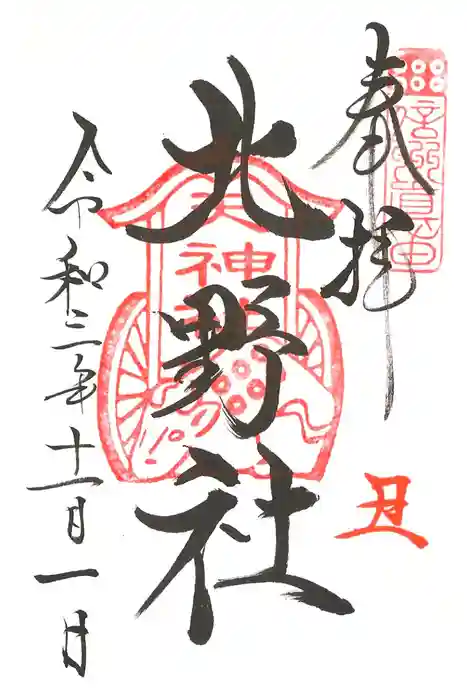 奉拝
信州真田
丑
北野社
天神
令和三年十一月一日